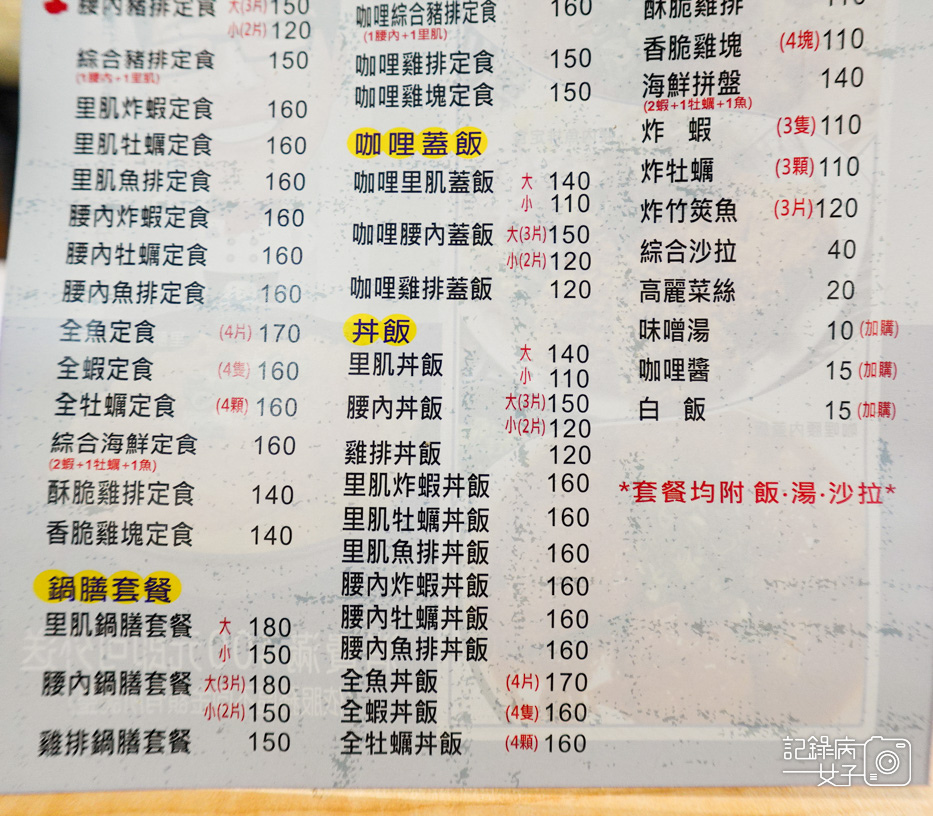 腰內豬排定食 大(3片)150
小(2片)120
綜合豬排定食 150
(1腰內+1里肌)
里肌炸蝦定食 160
里肌牡蠣定食 160
里肌魚排定食 160
腰內炸蝦定食 160
腰內牡蠣定食 160
腰內魚排定食 160
全魚定食 (4片)170
全蝦定食 (4隻)160
全牡蠣定食 (4顆)160
綜合海鮮定食 160
(2蝦+1牡蠣+1魚)
酥脆雞排定食 140
香脆雞塊定食 140
鍋膳套餐
里肌鍋膳套餐 大 180
小 150
腰內鍋膳套餐 大(3片)180
小(2片)150
雞排鍋膳套餐 150
咖哩綜合豬排定食 160
(1腰內+1里肌)
咖哩雞排定食 150
咖哩雞塊定食 150
咖哩蓋飯
咖哩里肌蓋飯 大 140
小 110
咖哩腰內蓋飯 大(3片)150
小(2片)120
咖哩雞排蓋飯 120
丼飯
里肌丼飯 大 140
小 110
腰內丼飯 大(3片)150
小(2片)120
雞排丼飯 120
里肌炸蝦丼飯 160
里肌牡蠣丼飯 160
里肌魚排丼飯 160
腰內炸蝦丼飯 160
腰內牡蠣丼飯 160
腰內魚排丼飯 160
全魚丼飯 (4片)170
全蝦丼飯 (4隻)160
全牡蠣丼飯 (4顆)160
酥脆雞排 110
香脆雞塊 (4塊)110
海鮮拼盤 140
(2蝦+1牡蠣+1魚)
炸 蝦 (3隻)110
炸牡蠣 (3顆)110
炸竹筴魚 (3片)120
綜合沙拉 40
高麗菜絲 20
味噌湯 10(加購)
咖哩醬 15(加購)
白 飯 15(加購)
*套餐均附 飯·湯·沙拉*
記錄病
女子